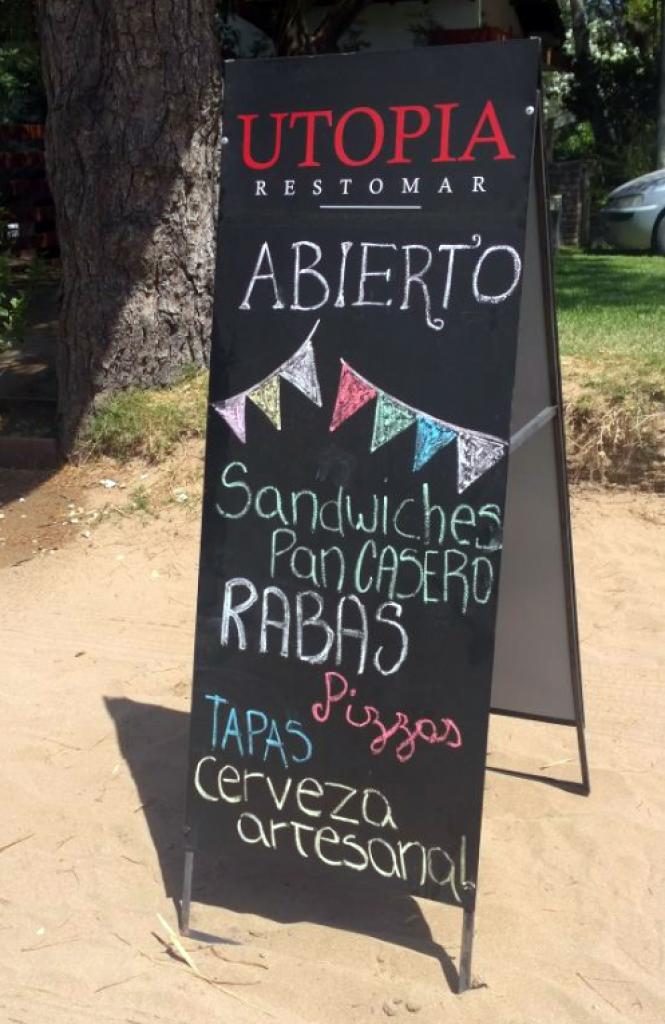 UTOPIA
RESTOMAR
ABIERTO
Sandwiches
Pan CASERO
RABAS
Pizzas
TAPAS
Cerveza
artesanal